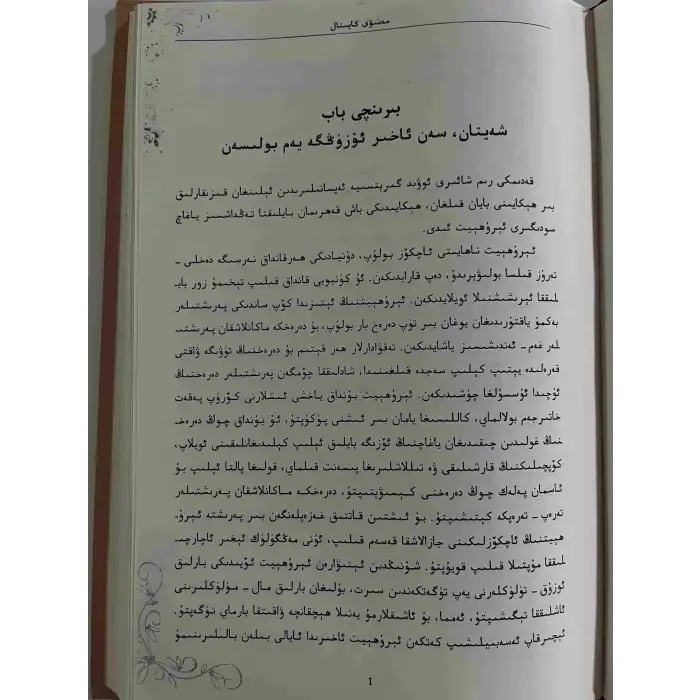 مەنىۋى كاپىتال
بىرىنچى باب
شەيتان، سەن ئاخىر ئۆزۈڭگە يەم بولىسەن
قەدىمكى رىم شائىرى ئوۋىد گىرېتسىيە ئەپسانىلىرىدىن ئېلىنغان قىزىقارلىق
بىر ھېكايىنى بايان قىلغان، ھېكايىدىكى باش قەھرىمان بايلىقتا تەڭداشسىز ياغاچ
سودىگىرى ئېرۇھېيت ئىدى.
ئېرۇھېيت ناھايىتى ئاچكۆز بولۇپ، دۇنيادىكى ھەرقانداق نەرسىگە دەخلى –
تەرۇز قىلسا بولىۋېرىدۇ، دەپ قارايدىكەن. ئۇ كۈنبويى قانداق قىلىپ تېخىمۇ زور باي-
لىققا ئېرىشىشنىلا ئويلايدىكەن. ئېرۇھېيتنىڭ ئېتىزىدا كۆپ ساندىكى پەرىشتىلەر
بەكمۇ ياقتۇرىدىغان يوغان بىر تۈپ دەرەخ بار بولۇپ، بۇ دەرەخكە ماكانلاشقان پەرىشتى-
لەر غەم – ئەندىشىسىز ياشايدىكەن. تەقۋادارلار ھەر قېتىم بۇ دەرەخنىڭ تۈۋىگە ۋاقتى
قەرەلىدە يېتىپ كېلىپ سەجدە قىلغىنىدا، شادلىققا چۆمگەن پەرىشتىلەر دەرەخنىڭ
ئۇچىدا ئۇسسۇلغا چۈشىدىكەن. ئېرۇھېيت بۇنداق ياخشى ئىشلارنى كۆرۈپ پەقەت
خاتىرجەم بولالماي، كاللىسىغا يامان بىر ئىشنى پۈكۈپتۇ، ئۇ بۇنداق چوڭ دەرەخ-
نىڭ غولىدىن چىقىدىغان ياغاچنىڭ ئۆزىگە بايلىق ئېلىپ كېلىدىغانلىقىنى ئويلاپ،
كۆپچىلىكنىڭ قارشىلىقى ۋە تىللاشلىرىغا پىسەنت قىلماي، قولىغا پالتا ئېلىپ بۇ
ئاسمان پەلەك چوڭ دەرەخنى كېسىۋېتىپتۇ، دەرەخكە ماكانلاشقان پەرىشتىلەر
تەرەپ – تەرەپكە كېتىشىپتۇ. بۇ ئىشتىن قاتتىق غەزەپلەنگەن بىر پەرىشتە ئېرۇ-
ھېيتنىڭ ئاچكۆزلىكىنى جازالاشقا قەسەم قىلىپ، ئۇنى مەڭگۈلۈك ئېغىر ئاچارچى-
لىققا مۇپتىلا قىلىپ قويۇپتۇ. شۇنىڭدىن ئېتىۋارەن ئېرۇھېيت ئۆيىدىكى بارلىق
ئوزۇق – تۈلۈكلەرنى يەپ تۈگەتكەندىن سىرت، بۇلىغان بارلىق مال – مۈلۈكلىرىنى
ئاشلىققا تېگىشىپتۇ، ئەمما، بۇ ئاشىقلارمۇ يەنىلا ھېچقانچە ۋاقىتقا بارماي تۈگەپتۇ.
ئېچىرقاپ ئەسەبىيلىشىپ كەتكەن ئېرۇھېيت ئاخىرىدا ئايالى بىلەن بالىلىرىنىمۇ
1